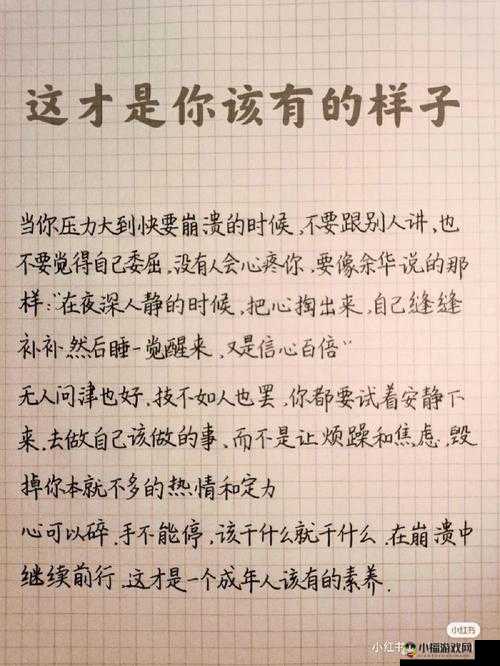 这才是你该有的样子
当你压力大到快要崩溃的时候,不要跟别人讲,也
不要觉得自己委屈,没有人会心疼你.要像余华说的那
样:"在夜深人静的时候,把心掏出来,自己缝缝
补补.然后睡一觉醒来,又是信心百倍"
无人问津也好.技不如人也罢.你都要试着安静下
来.去做自己该做的事.而不是让烦躁和焦虑.毁
掉你本就不多的热情和定力
心可以碎.手不能停,该干什么就干什么.在崩溃中
继续前行.这才是一个成年人该有的素养.
小红书
小红书
小福游戏网